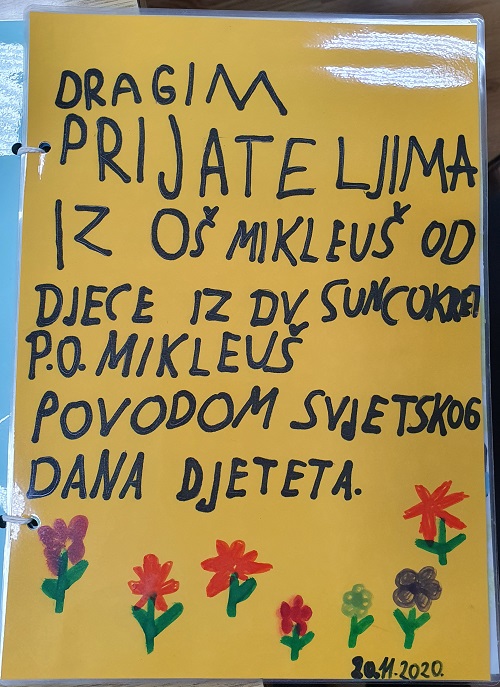 DRAGIM
PRIJATELJIMA
IZ OŠ MIKLEUŠ OD
DJECE IZ DV SUNCOKRET
P.O. MIKLEUŠ
POVODOM SVJETSKOG
DANA DJETETA.
20.11.2020.